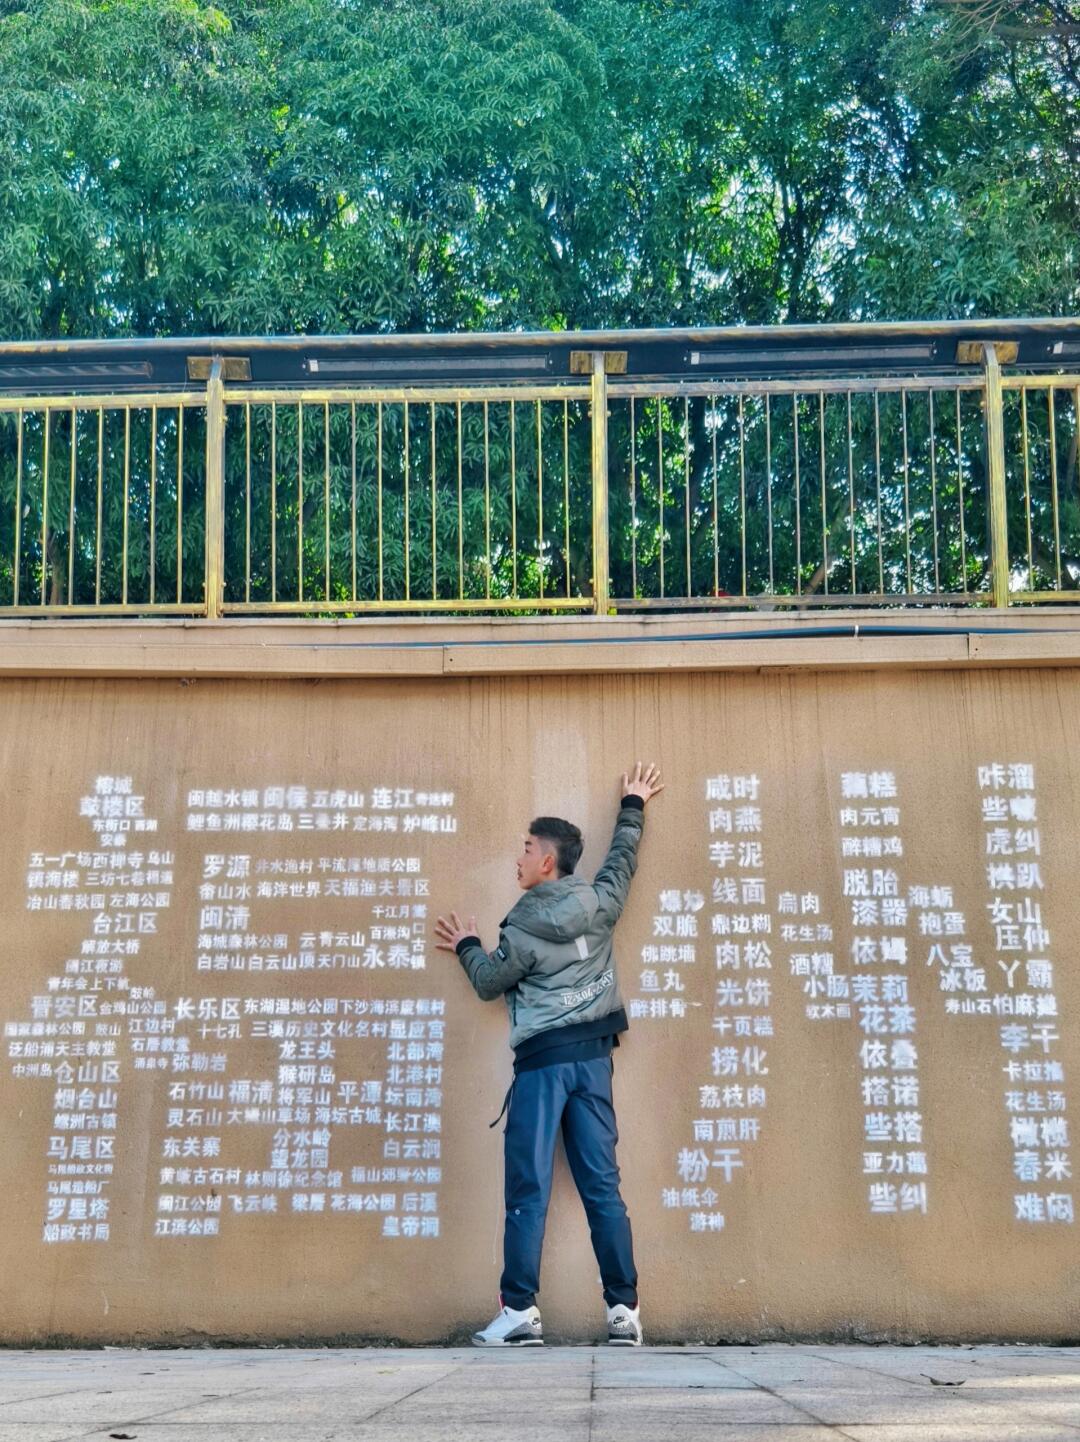 榕城
鼓楼区
东街口 西湖
安泰
五一广场 西禅寺 乌山
镇海楼 三坊七巷
冶山春秋园 左海公园
台江区
解放大桥
闽江夜游
青年会上下杭
晋安区 金鸡山公园 鼓岭
国家森林公园 鼓山 江边村
泛船浦天主教堂 石厝教堂
中洲岛 仓山区 涌泉寺 弥勒岩
烟台山
螺洲古镇
马尾区
马尾船政文化街
马尾造船厂
罗星塔
船政书局
闽越水镇 闽侯 五虎山 连江 奇达村
鲤鱼洲樱花岛 三叠井 定海湾 炉峰山
罗源 井水渔村 平流尾地质公园
畲山水 海洋世界 天福渔夫景区
闽清 千江月
海城森林公园 云青云山 百漈沟
白岩山 白云山顶 天门山 永泰
长乐区 东湖湿地公园 下沙海滨度假村
十七孔 三溪历史文化名村 显应宫
龙王头 北部湾
猴研岛 北港村
石竹山 福清 将军山 平潭 坛南湾
灵石山 大嵊山草场 海坛古城 长江澳
东关寨 分水岭 白云洞
望龙园
黄岐古石村 林则徐纪念馆 福山郊野公园
闽江公园 飞云峡 梁厝 花海公园 后溪
江滨公园 皇帝洞
咸时
肉燕
芋泥
爆炒 线面 扁肉
双脆 鼎边糊 花生汤
佛跳墙 肉松 酒糟
鱼丸 光饼 小肠
醉排骨 千页糕 软木画
捞化
荔枝肉
南煎肝
粉干
油纸伞
游神
藕糕
肉元宵
醉糟鸡
脱胎 海蛎
漆器 抱蛋
依姆 八宝
茉莉 冰饭
花茶 寿山石
依叠
搭诺
些搭
亚力蔼
些纠
咔溜
些噉
虎纠
拱趴
女山
压仲
丫霸
怕麻
李干
卡拉搞
花生汤
橄榄
春米
难闷